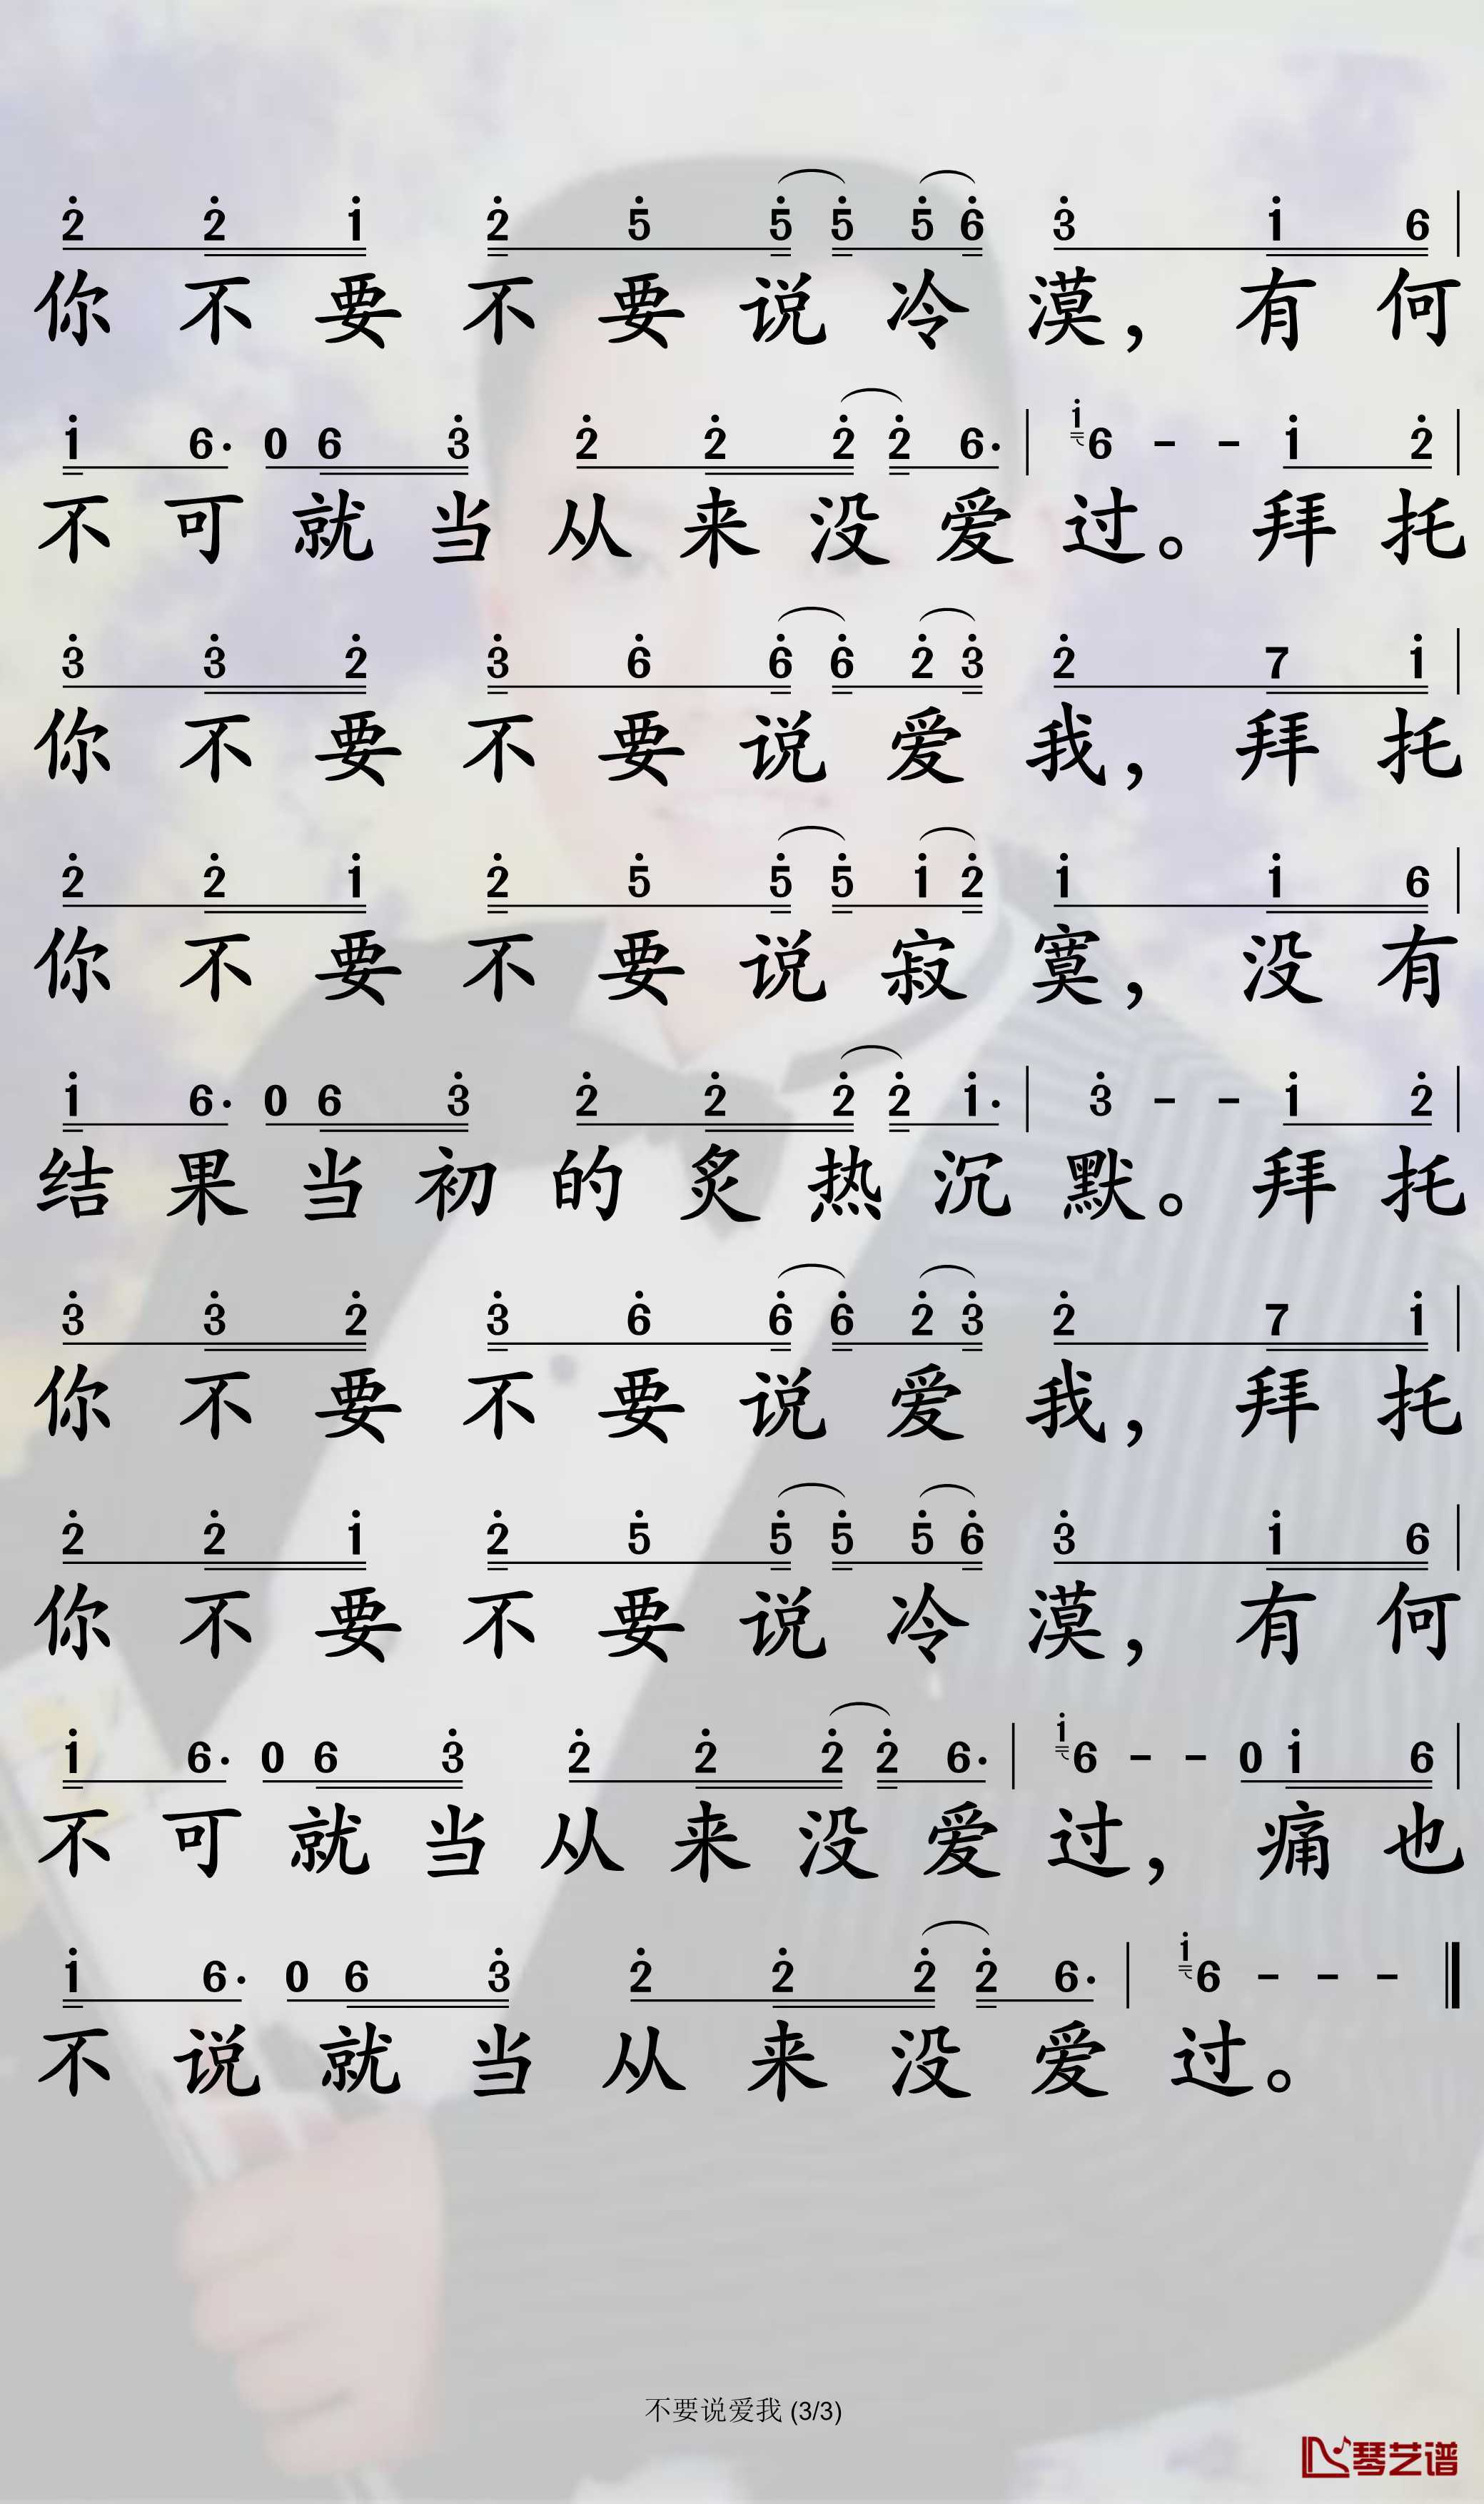 2 2 1 2 5 5 5 5 6 3 1 6 |
你不要不要说冷漠，有何
1 6. 0 6 3 2 2 2 2 6. | 1 6 - - 1 2 |
不可就当从来没爱过。拜托
3 3 2 3 6 6 6 2 3 2 7 1 |
你不要不要说爱我，拜托
2 2 1 2 5 5 5 1 2 1 1 6 |
你不要不要说寂寞，没有
1 6. 0 6 3 2 2 2 2 1. | 3 - - 1 2 |
结果当初的炙热沉默。拜托
3 3 2 3 6 6 6 2 3 2 7 1 |
你不要不要说爱我，拜托
2 2 1 2 5 5 5 5 6 3 1 6 |
你不要不要说冷漠，有何
1 6. 0 6 3 2 2 2 2 6. | 1 6 - - 0 1 6 |
不可就当从来没爱过，痛也
1 6. 0 6 3 2 2 2 2 6. | 1 6 - - - ‖
不说就当从来没爱过。
不要说爱我 (3/3)
琴艺谱